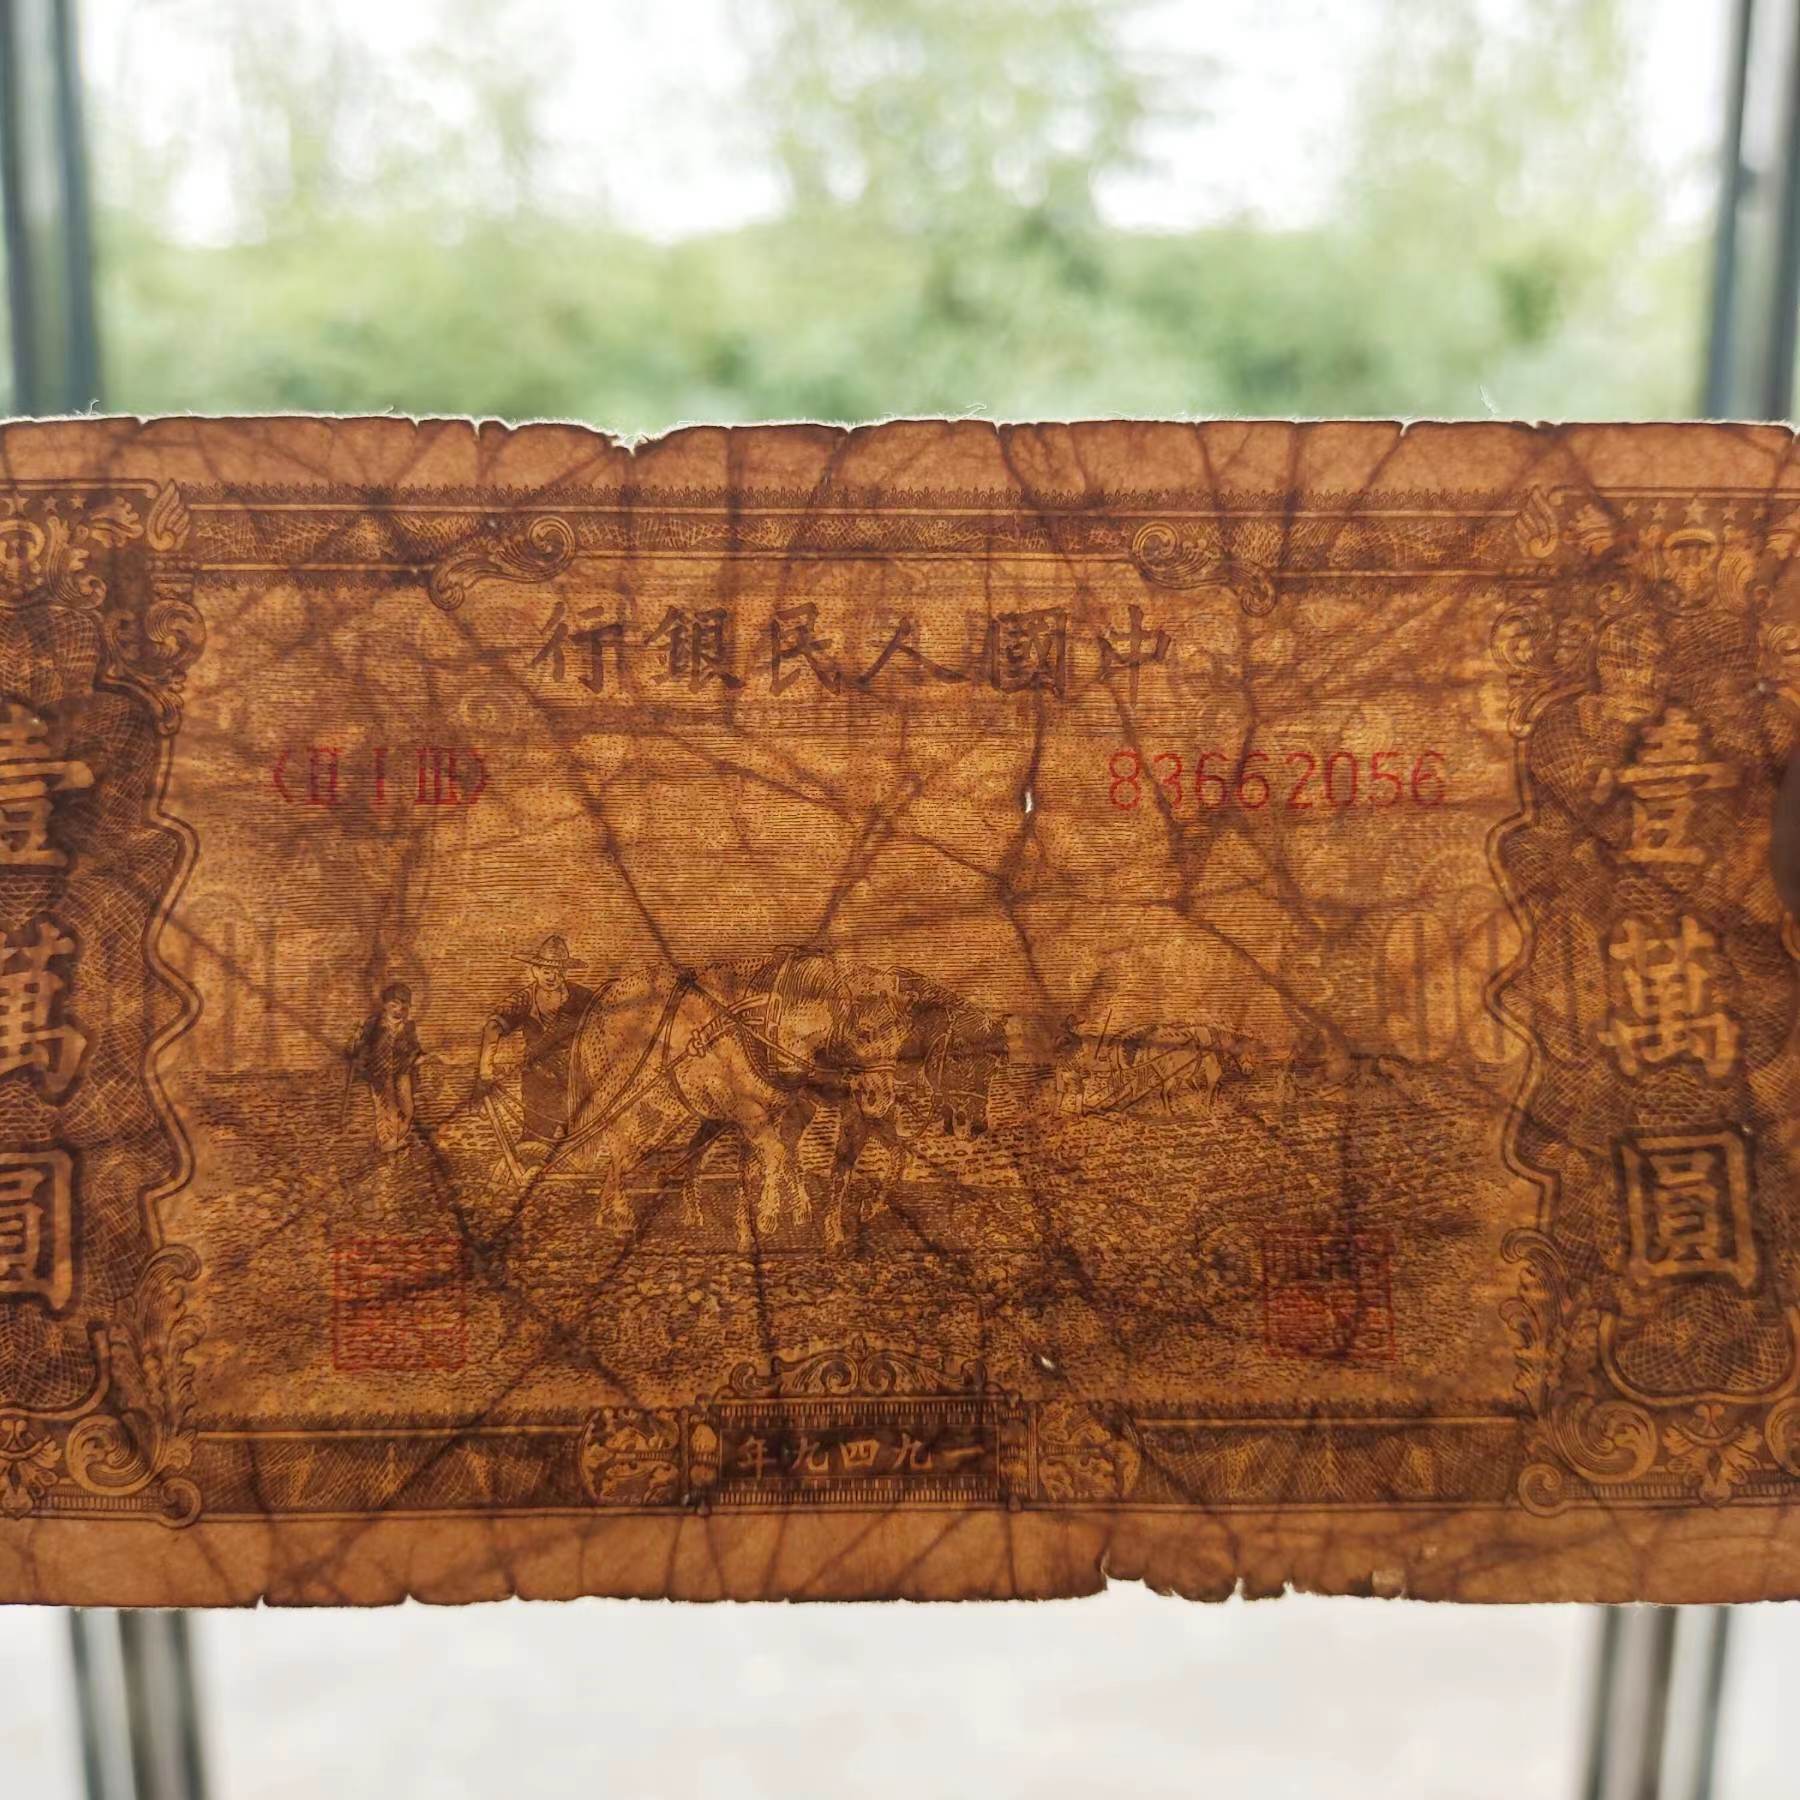 中國人民銀行
〈ⅡⅠⅢ〉 83662056
壹萬圓
壹萬圓
一九四九年